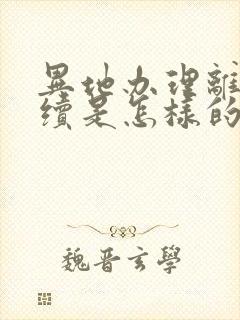 異地办理離
續是怎樣的
魏晋玄學